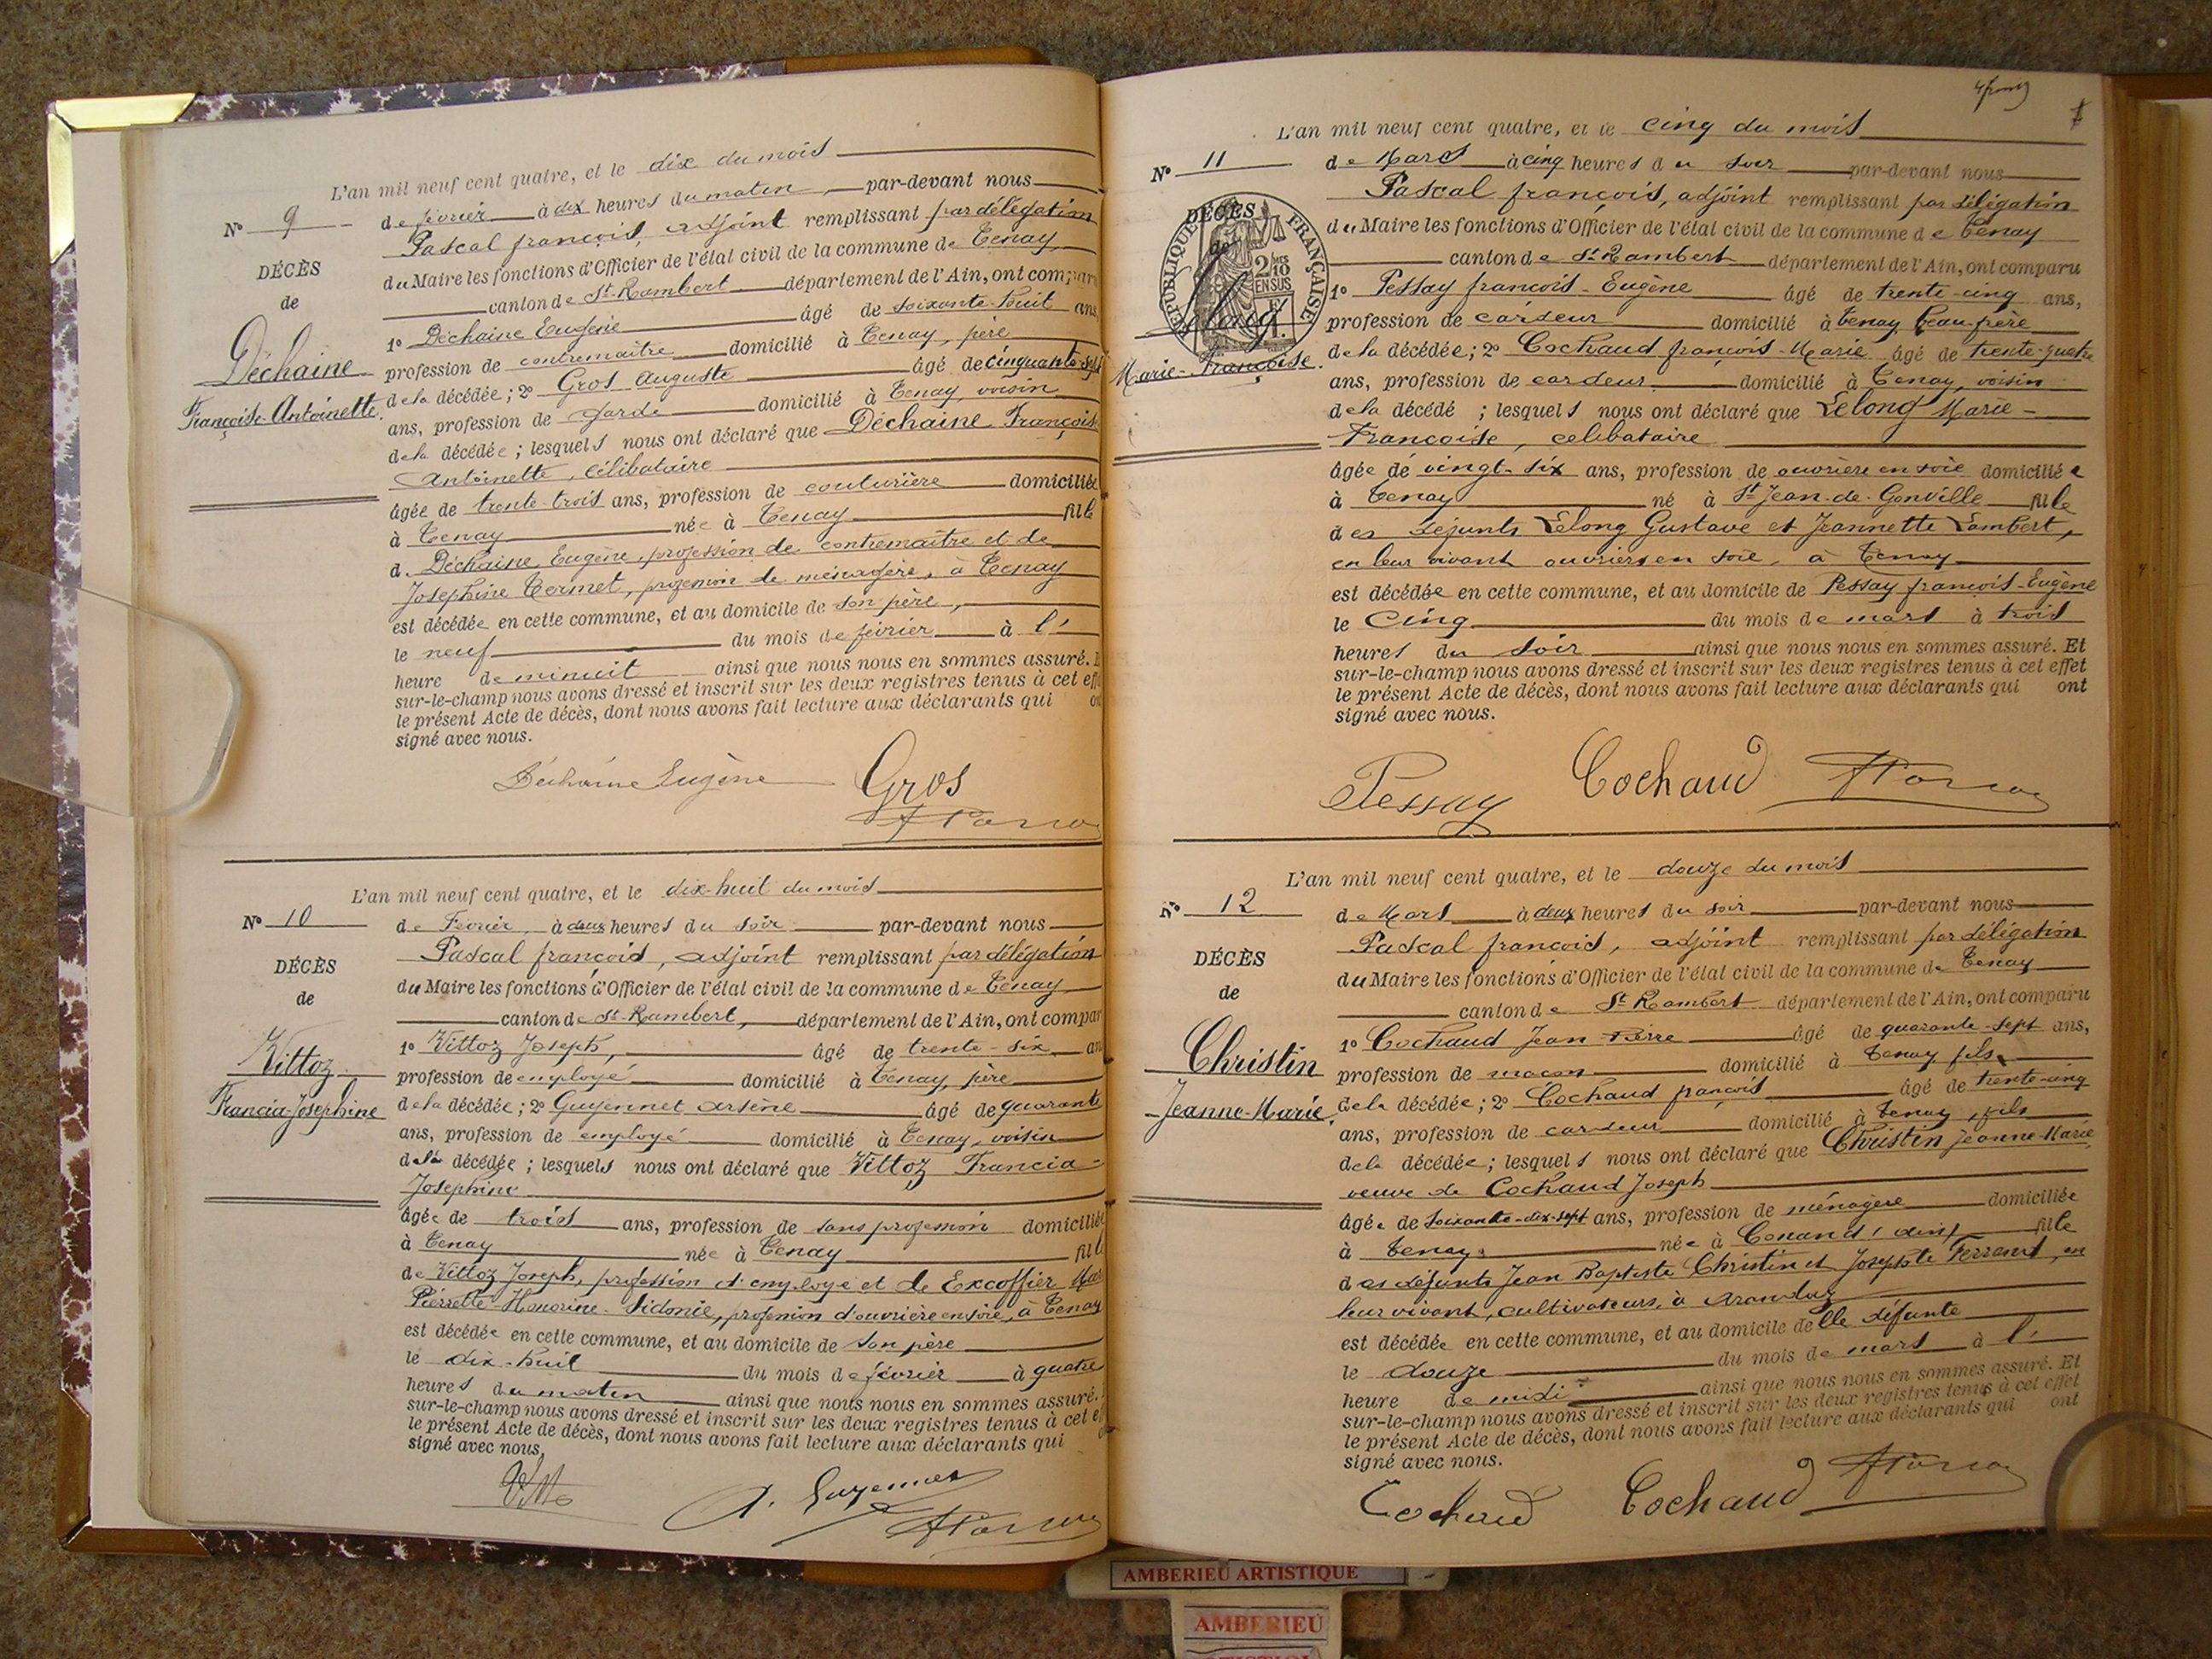 L'an mil neuf cent quatre, et le dix du mois
N° 9
de février à dix heures du matin, par-devant nous
Pascal françois, adjoint remplissant par délégation
du Maire les fonctions d'Officier de l'état civil de la commune de Tenay
DÉCÈS
de
Déchaine
Françoise-Antoinette.
canton de St-Rambert département de l'Ain, ont compar
1° Déchaine Eugène âgé de soixante-huit ans,
profession de contremaître domicilié à Tenay, père
de la décédée; 2° Gros Auguste âgé de cinquante-sept
ans, profession de garde domicilié à Tenay, voisin
de la décédée; lesquels nous ont déclaré que Déchaine Françoise
Antoinette, célibataire
âgée de trente-trois ans, profession de couturière domiciliée
à Tenay née à Tenay fille
de Déchaine Eugène, profession de contremaître et de
Joséphine Termet, profession de ménagère, à Tenay
est décédée en cette commune, et au domicile de son père,
le neuf du mois de février à l'
heure de minuit ainsi que nous nous en sommes assuré. E
sur-le-champ nous avons dressé et inscrit sur les deux registres tenus à cet eff
le présent Acte de décès, dont nous avons fait lecture aux déclarants qui on
signé avec nous.
Déchaine Eugène Gros
L'an mil neuf cent quatre, et le dix-huit du mois
N° 10
de Février, à deux heures du soir par-devant nous
Pascal françois, adjoint remplissant par délégation
du Maire les fonctions d'Officier de l'état civil de la commune de Tenay
DÉCÈS
de
Vittoz
Francia-Josephine
canton de St-Rambert, département de l'Ain, ont compar
1° Vittoz Joseph, âgé de trente-six an
profession de employé domicilié à Tenay, père
de la décédée; 2° Guyennet Arsène âgé de quarante
ans, profession de employé domicilié à Tenay, voisin
de la décédée; lesquels nous ont déclaré que Vittoz Francia-
Josephine
âgée de trois ans, profession de sans profession domiciliée
à Tenay née à Tenay fille
de Vittoz Joseph, profession d'employé et de Excoffier Mar
Pierrette-Honorine-Sidonie, profession d'ouvrière en soie, à Tenay
est décédée en cette commune, et au domicile de son père
le dix-huit du mois de février à quatre
heures du matin ainsi que nous nous en sommes assuré.
sur-le-champ nous avons dressé et inscrit sur les deux registres tenus à cet e
le présent Acte de décès, dont nous avons fait lecture aux déclarants qui
signé avec nous,
A. Guyennet
L'an mil neuf cent quatre, et le cinq du mois
N° 11
de Mars à cinq heures du soir par-devant nous
Pascal françois, adjoint remplissant par délégation
du Maire les fonctions d'Officier de l'état civil de la commune de Tenay
DÉCÈS
de
Lelong
Marie-Françoise.
RÉPUBLIQUE FRANÇAISE
2/10 EN SUS
canton de St-Rambert département de l'Ain, ont comparu
1° Pessay françois-Eugène âgé de trente-cinq ans,
profession de cardeur domicilié à Tenay beau-frère
de la décédée; 2° Cochaud françois-Marie âgé de trente-quatre
ans, profession de cardeur domicilié à Tenay, voisin
de la décédé ; lesquels nous ont déclaré que Lelong Marie-
Françoise, célibataire
âgée de vingt-six ans, profession de ouvrière en soie domiciliée
à Tenay né à St Jean-de-Gonville fille
des défunts Lelong Gustave et Jeannette Lambert,
en leur vivant ouvriers en soie, à Tenay
est décédée en cette commune, et au domicile de Pessay françois-Eugène
le cinq du mois de mars à trois
heures du soir ainsi que nous nous en sommes assuré. Et
sur-le-champ nous avons dressé et inscrit sur les deux registres tenus à cet effet
le présent Acte de décès, dont nous avons fait lecture aux déclarants qui ont
signé avec nous.
Pessay Cochaud
L'an mil neuf cent quatre, et le douze du mois
N° 12
de Mars à deux heures du soir par-devant nous
Pascal françois, adjoint remplissant par délégation
du Maire les fonctions d'Officier de l'état civil de la commune de Tenay
DÉCÈS
de
Christin
Jeanne-Marie.
canton de St Rambert département de l'Ain, ont comparu
1° Cochaud Jean-Pierre âgé de quarante-sept ans,
profession de maçon domicilié à Tenay fils
de la décédée; 2° Cochaud françois âgé de trente-cinq
ans, profession de cardeur domicilié à Tenay, fils
de la décédée; lesquels nous ont déclaré que Christin Jeanne-Marie
veuve de Cochaud Joseph
âgée de soixante-dix-sept ans, profession de ménagère domiciliée
à Tenay née à Conand (ain) fille
des défunts Jean Baptiste Christin et Josephte Ferrand, en
leur vivant, cultivateurs, à Arandaz
est décédée en cette commune, et au domicile de lle défunte
le douze du mois de mars à l'
heure de midi ainsi que nous nous en sommes assuré. Et
sur-le-champ nous avons dressé et inscrit sur les deux registres tenus à cet effet
le présent Acte de décès, dont nous avons fait lecture aux déclarants qui ont
signé avec nous.
Cochaud Cochaud
AMBERIEU ARTISTIQUE
AMBERIEU